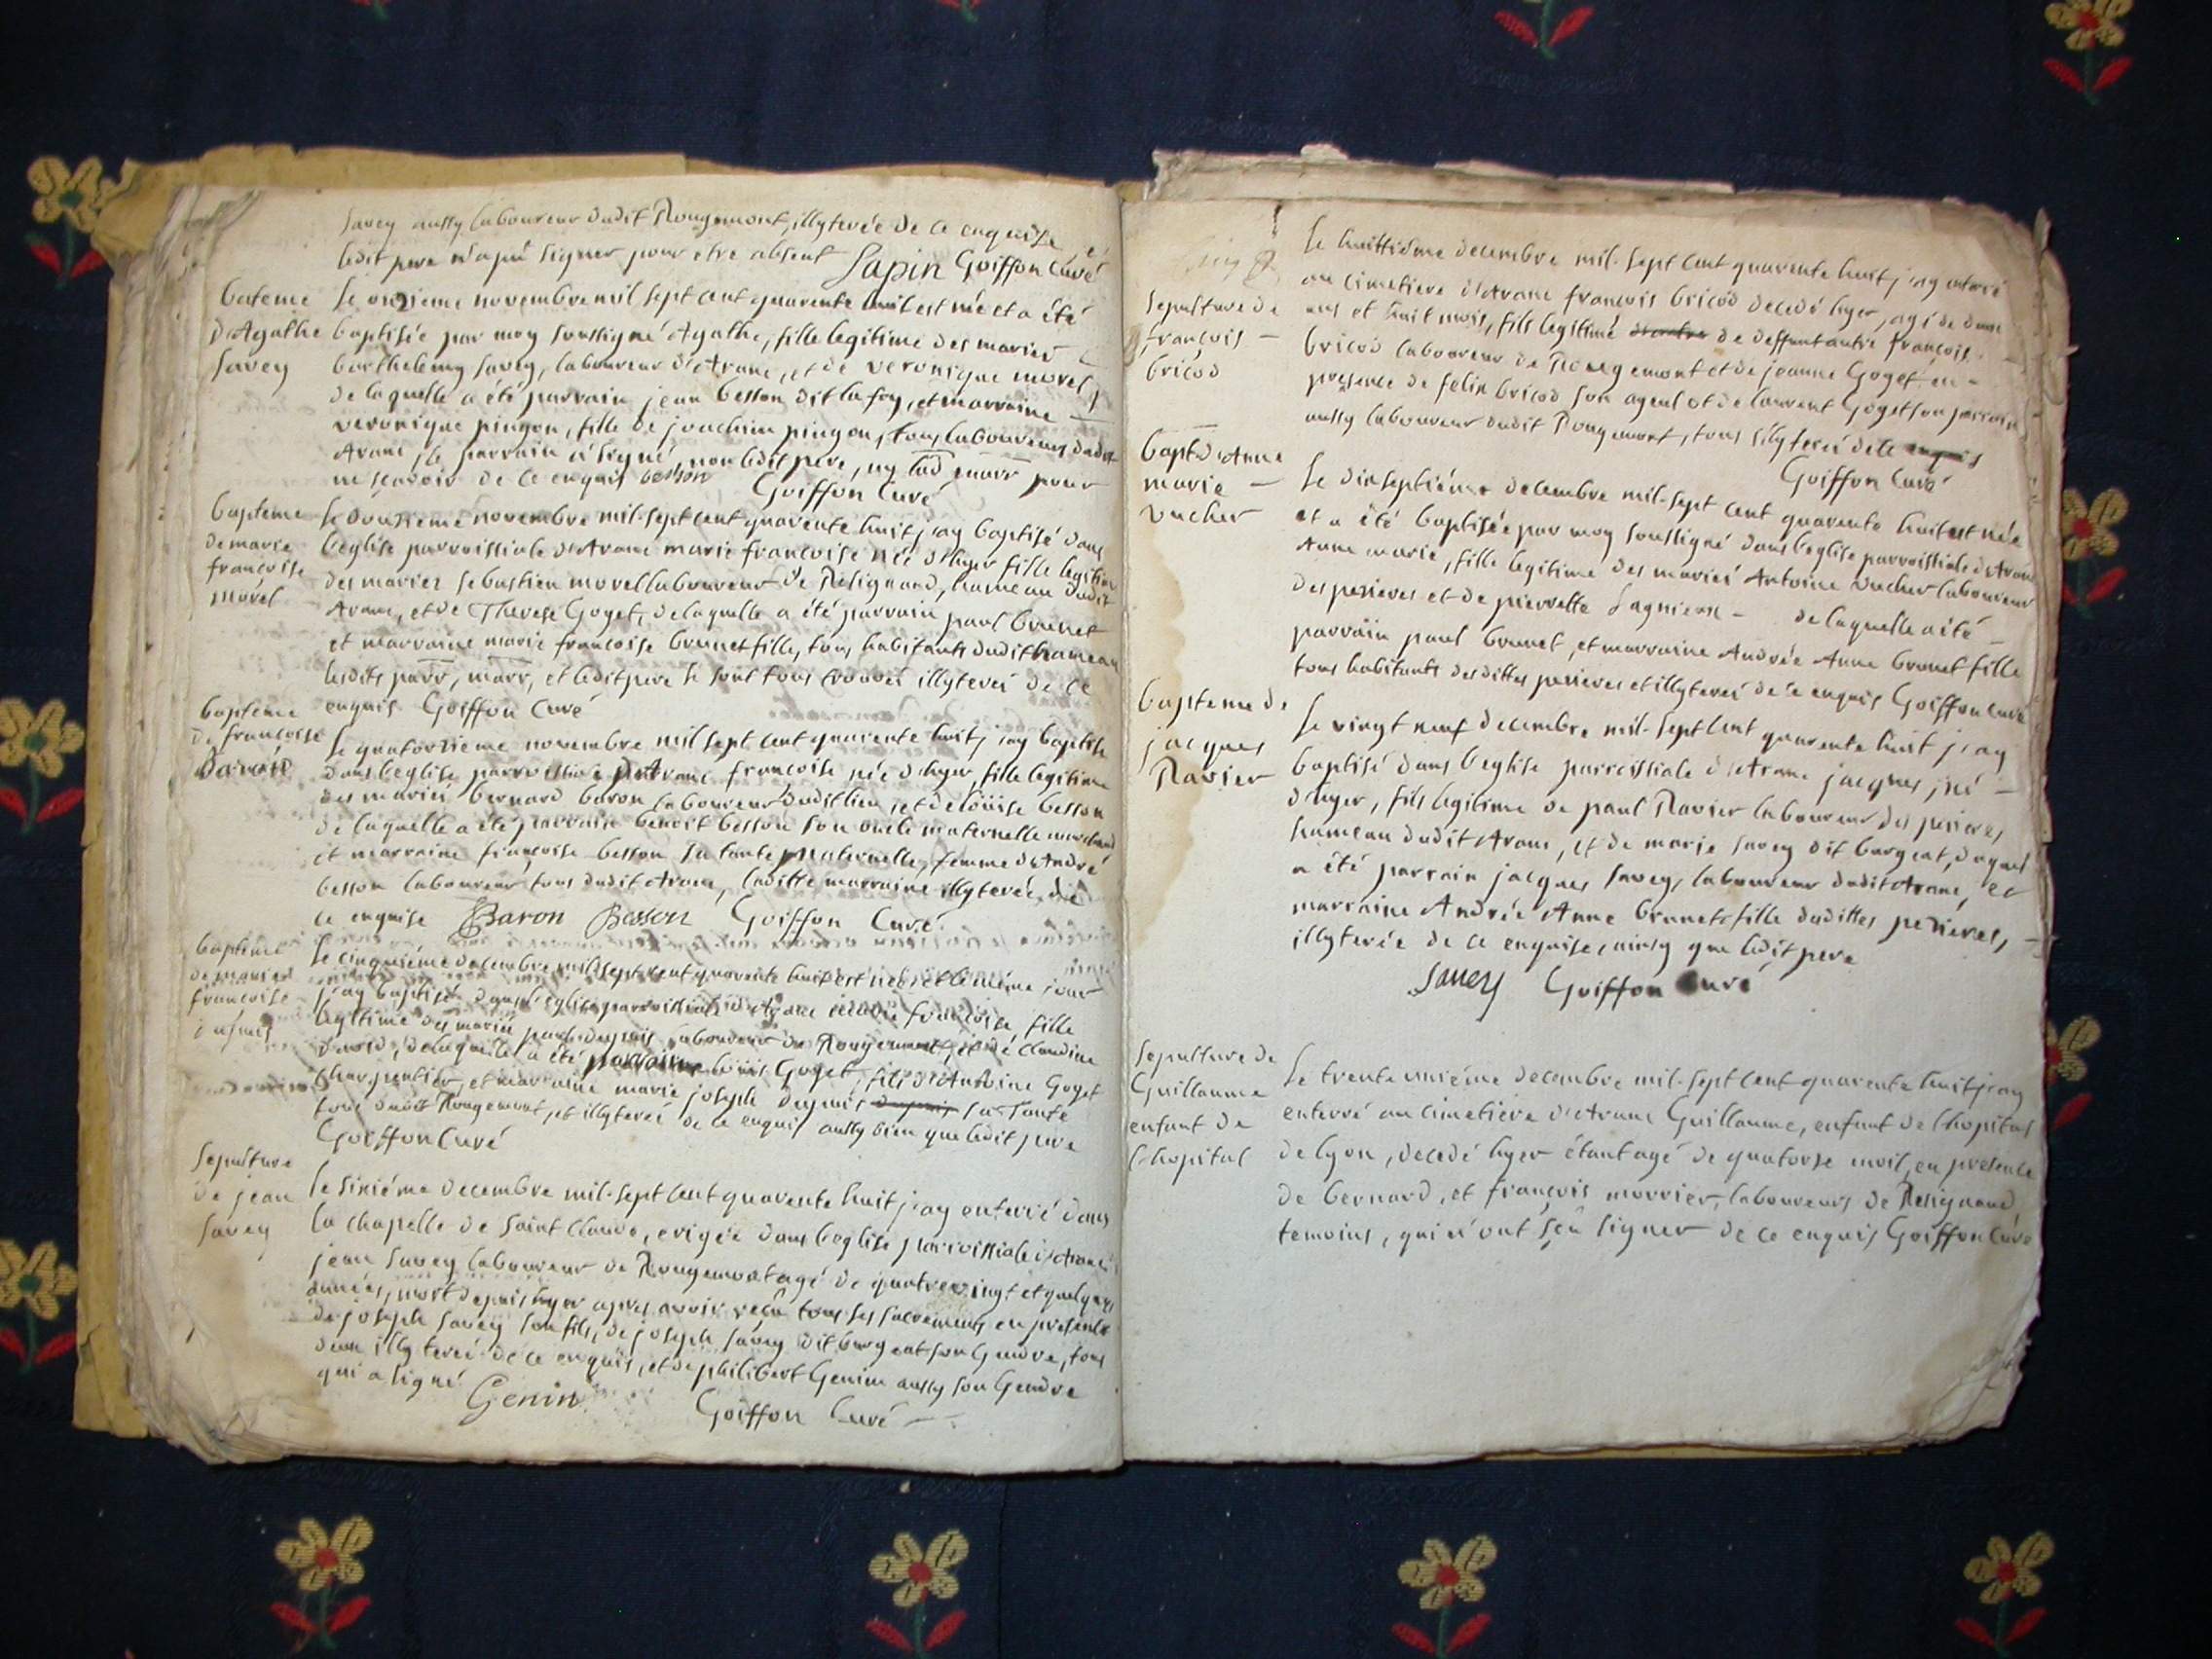 Savey aussy laboureur dudit Rougemont, illyterée de ce enquise et
ledit pere n'a pû signer pour etre absent Sapin Goiffon Curé
bateme
d'Agathe
Savey
Le onzieme novembre mil sept cent quarente huit est née et a été
baptisée par moy soussigné Agathe, fille legitime des mariés
barthelemy Savey, laboureur d'Aranc, et de veronique morel,
de laquelle a été parrain jean besson dit lafoy, et marraine
veronique pingon, fille de joachim pingon, tous laboureurs dudit
Aranc, le parrain a signé, non ledit pere, ny lad marr pour
ne sçavoir de ce enquis besson Goiffon Curé
bapteme
de marie
francoise
morel
Le douzieme novembre mil-sept cent quarente huit j'ay baptisé dans
l'eglise parroissiale d'Aranc marie francoise née d'hyer fille legitime
des mariez sebastien morel laboureur de Resignand, hameau dudit
Aranc, et de Therese Goget, de laquelle a été parrain paul brunet
et marraine marie francoise brunet fille, tous habitants dudit hameau
lesdits parr, marr, et ledit pere se sont tous trouvés illyterés de ce
enquis Goiffon Curé
bapteme
de francoise
baron
Le quatorzieme novembre mil sept cent quarente huit j'ay baptisé
dans l'eglise parroissiale d'Aranc francoise née d'hyer, fille legitime
des mariés bernard baron laboureur dudit lieu, et de loüise besson
de laquelle a été parrain benoit besson son oncle maternelle
et marraine françoise besson sa tante maternelle, femme d'André
besson laboureur tous dudit Aranc, laditte marraine illyterée de
ce enquise Baron Besson Goiffon Curé
bapteme
de marie
francoise
dupuis
Le cinquiéme decembre mil sept cent quarente huit est née et le même jour
j'ay baptisé dans l'eglise parroissiale d'Aranc marie francoise, fille
legitime des mariés paul dupuis laboureur de Rougemont, et de Claudine
de laquelle a été parrain loüis Goget, fils d'Antoine Goget
charpentier, et marraine marie joseph dupuis sa Tante
tous dudit Rougemont, et illyterés de ce enquis aussy bien que ledit pere
Goiffon Curé
sepulture
de jean
Savey
le sixiéme decembre mil-sept cent quarente huit j'ay enterré dans
la chapelle de saint Claude, erigée dans l'eglise parroissiale d'Aranc
jean Savey laboureur de Rougemont agé de quatrevingt et quelques
années, mort depuis hyer apres avoir reçû tous ses sacrements en presence
de joseph Savey son fils, de joseph Savey dit burgeat son Gendre, tous
deux illyterés de ce enquis, et de philibert Genin aussy son Gendre
qui a signé
Genin Goiffon Curé
sepulture de
françois
bricod
Le huittiéme decembre mil-sept cent quarente huit j'ay enterré
au cimetiere d'Aranc françois bricod decedé hyer, agé de deux
ans et huit mois, fils legitime de deffunt autre françois
bricod laboureur de Rougemont et de jeanne Goget en
presence de felix bricod son ayeul et de laurent Goget son parrain
aussy laboureur dudit Rougemont, tous illyterés de ce enquis
Goiffon Curé
bapt d'Anne
marie
vucher
Le dixseptiéme decembre mil-sept cent quarente huit est née
et a été baptisée par moy soussigné dans l'eglise parroissiale d'Aranc
Anne marie, fille legitime des mariés Antoine vucher laboureur
des pezieres et de pierrette Lagnieu de laquelle a été
parrain paul brunet, et marraine Andrée Anne brunet fille
tous habitants desdittes pezieres et illyterés de ce enquis Goiffon Curé
bapteme de
jacques
Ravier
Le vingt neuf decembre mil-sept cent quarente huit j'ay
baptisé dans l'eglise parroissiale d'Aranc jacques, né
d'hyer, fils legitime de paul Ravier laboureur des pezieres
hameau dudit Aranc, et de marie Savey dit burgeat, duquel
a été parrain jacques Savey, laboureur dudit Aranc, et
marraine Andrée Anne brunet fille dudittes pezieres,
illyterée de ce enquise, ainsy que ledit pere
Savey Goiffon Curé
sepulture de
Guillaume
enfant de
l'hopital
Le trente uniéme decembre mil-sept cent quarente huit j'ay
enterré au cimetiere d'Aranc Guillaume, enfant de l'hopital
de lyon, decedé hyer étant agé de quatorze mois, en presence
de bernard, et françois morrier, laboureurs de Resignand,
temoins, qui n'ont sçû signer de ce enquis Goiffon Curé